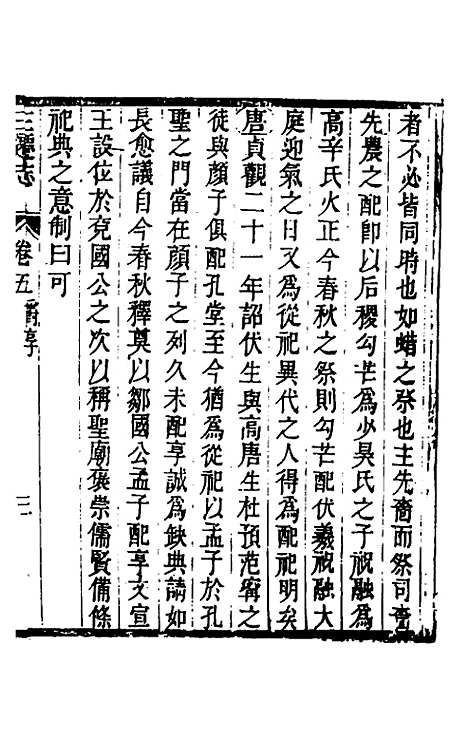 者不必皆同時也如蜡之祭也主先嗇而祭司嗇
先農之配卽以后稷勾芒為少昊氏之子祝融為
高辛氏火正今春秋之祭則勾芒配伏羲祝融大
庭迎氣之日又為從祀異代之人得為配祀明矣
唐貞觀二十一年詔伏生與高唐生杜預范甯之
徒與顏子俱配孔堂至今猶為從祀以孟子於孔
聖之門當在顏子之列久未配享誠為缺典請如
長愈議自今春秋釋奠以鄒國公孟子配享文宣
王設位於兗國公之次以稱聖廟褒崇儒賢備條
祀典之意制曰可
三遷志 卷五 爵享 三